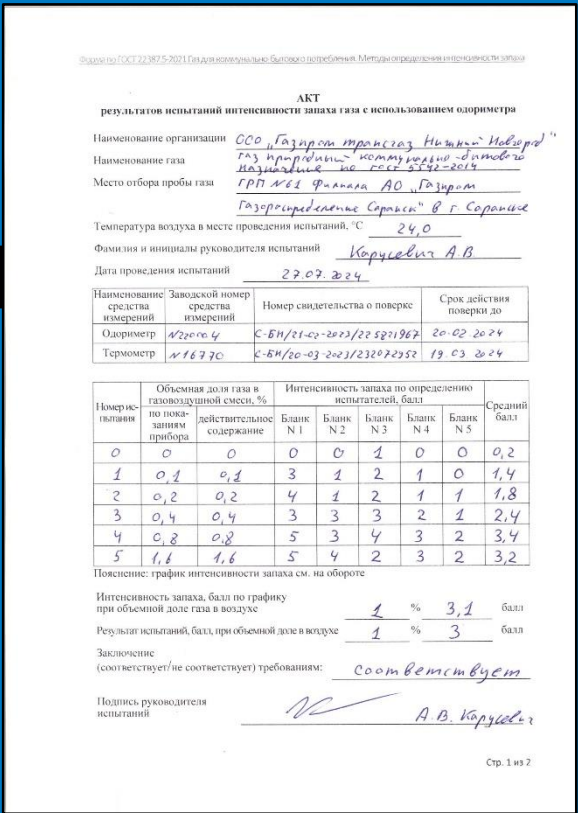 Форма по ГОСТ 22387.5-2021 Газ для коммунально-бытового потребления. Методы определения интенсивности запаха
АКТ
результатов испытаний интенсивности запаха газа с использованием одориметра
Наименование организации ООО „Газпром трансгаз Нижний Новгород"
Наименование газа газ природный коммунально-бытового
назначения по гост 5542-2014
Место отбора пробы газа ГРП №61 Филиала АО „Газпром
Газораспределение Саранск" в г. Саранске
Температура воздуха в месте проведения испытаний, °С 24,0
Фамилия и инициалы руководителя испытаний Карусевич А.В
Дата проведения испытаний 27.07.2024
Наименование средства измерений Заводской номер средства измерений Номер свидетельства о поверке Срок действия поверки до
Одориметр С-БН/21-02-2023/225821967 20.02.2024
Термометр №16770 С-БН/20-03-2023/232072952 19.03.2024
Номер испытания Объемная доля газа в газовоздушной смеси, % Интенсивность запаха по определению испытателей, балл Средний балл
по показаниям прибора действительное содержание Бланк N 1 Бланк N 2 Бланк N 3 Бланк N 4 Бланк N 5
0 0 0 0 0 1 0 0 0,2
1 0,1 0,1 3 1 2 1 0 1,4
2 0,2 0,2 4 1 2 1 1 1,8
3 0,4 0,4 3 3 3 2 1 2,4
4 0,8 0,8 5 3 4 3 2 3,4
5 1,6 1,6 5 4 2 3 2 3,2
Пояснение: график интенсивности запаха см. на обороте
Интенсивность запаха, балл по графику
при объемной доле газа в воздухе 1 % 3,1 балл
Результат испытаний, балл, при объемной доле в воздухе 1 % 3 балл
Заключение
(соответствует/не соответствует) требованиям: соответствует
Подпись руководителя
испытаний А.В. Карусевич
Стр. 1 из 2